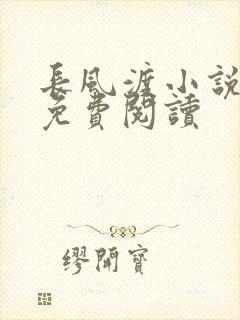 長風渡小說
免費閱讀
繆開寶